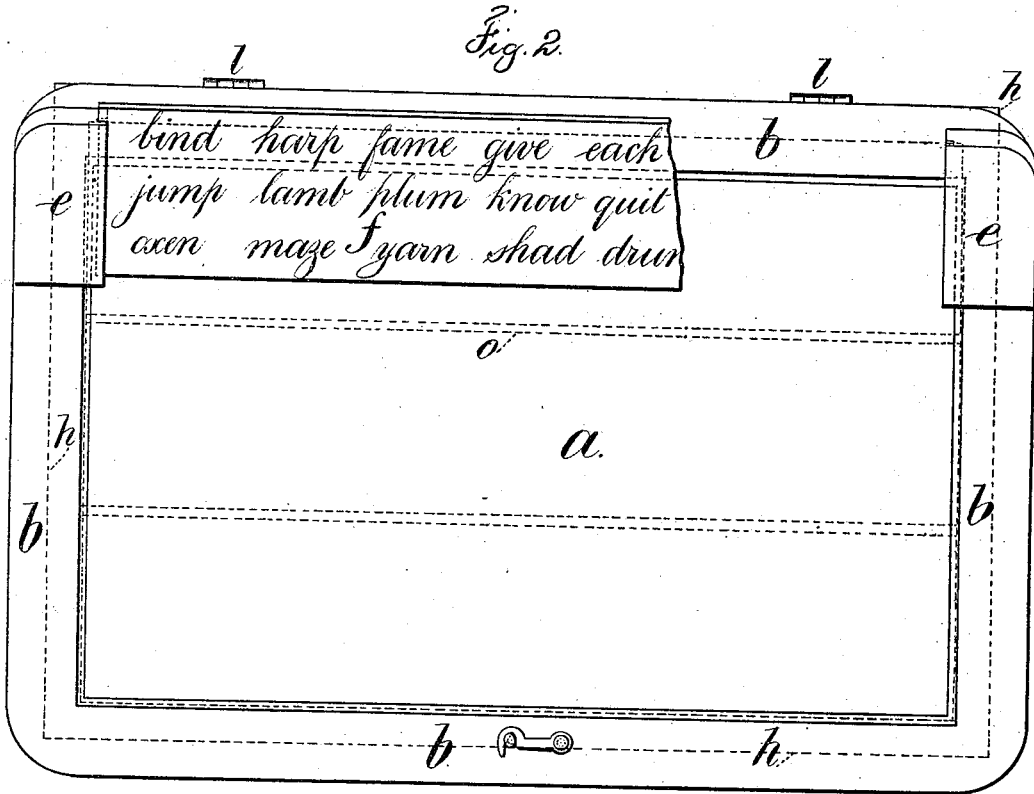 Fig. 2.
l l h
b
bind harp fame give each
e jump lamb plum know quit e
oxen maze f yarn shad drum
o
a.
h
b b
b h